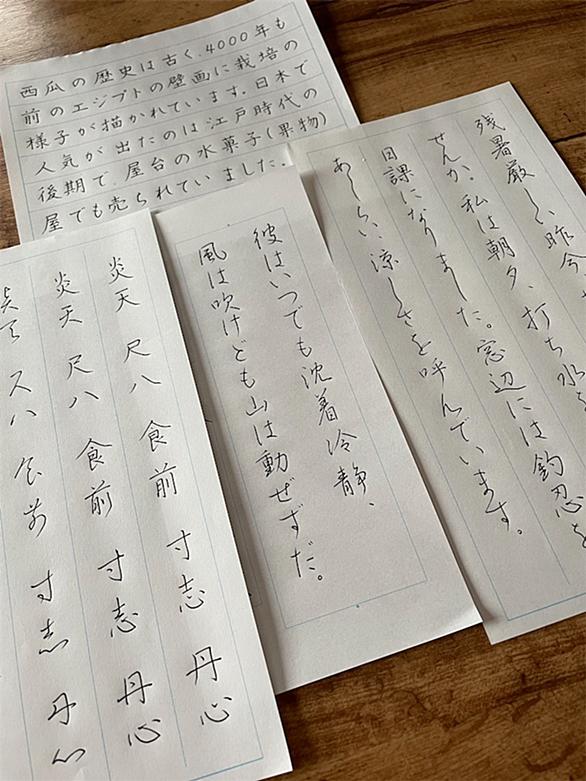 西瓜の歴史は古く、4000年も
前のエジプトの壁画に栽培の
様子が描かれています。日本で
人気が出たのは江戸時代の
後期で、屋台の水菓子(果物)
屋でも売られていました。
残暑厳しい昨今、
せんか。私は朝夕、打ち水を
日課になりました。窓辺には釣忍を
あしらい、涼しさを呼んでいます。
彼はいつでも沈着冷静、
風は吹けども山は動ぜずだ。
炎天 尺八 食前 寸志 丹心
炎天 尺八 食前 寸志 丹心
炎天 尺八 食前 寸志 丹心